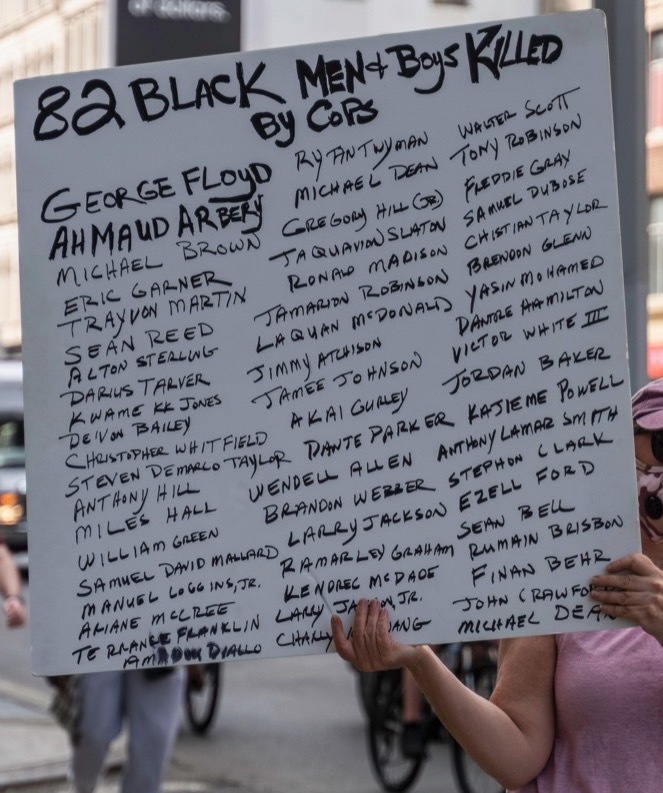 of dollars.
82 BLACK MEN & BOYS KILLED
BY COPS
GEORGE FLOYD
AHMAUD ARBERY
MICHAEL BROWN
ERIC GARNER
TRAYVON MARTIN
SEAN REED
ALTON STERLING
DARIUS TARVER
KWAME KK JONES
DE'VON BAILEY
CHRISTOPHER WHITFIELD
STEVEN DEMARCO TAYLOR
ANTHONY HILL
MILES HALL
WILLIAM GREEN
SAMUEL DAVID MALLARD
MANUEL LOGGINS, JR.
ARIANE MCCREE
TERRANCE FRANKLIN
AMADOU DIALLO
RYAN TWYMAN
MICHAEL DEAN
GREGORY HILL (JR)
JAQUAVION SLATON
RONALD MADISON
JAMARION ROBINSON
LAQUAN MCDONALD
JIMMY ATCHISON
JAMEE JOHNSON
AKAI GURLEY
DANTE PARKER
WENDELL ALLEN
BRANDON WEBBER
LARRY JACKSON
RAMARLEY GRAHAM
KENDREC MCDADE
LARRY JACKSON, JR.
WALTER SCOTT
TONY ROBINSON
FREDDIE GRAY
SAMUEL DUBOSE
CHISTIAN TAYLOR
BRENDON GLENN
YASIN MOHAMED
DANTRE HAMILTON
VICTOR WHITE III
JORDAN BAKER
KAJIEME POWELL
ANTHONY LAMAR SMITH
STEPHON CLARK
EZELL FORD
SEAN BELL
RUMAIN BRISBON
FINAN BEHR
JOHN
MICHAEL DEAN